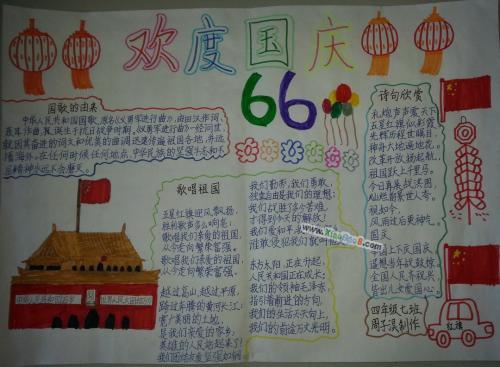 欢度国庆
66
国歌的由来
中华人民共和国国歌,原名《义勇军进行曲》,由田汉作词,
聂耳作曲,
就因其奋进的词义和优美的曲调迅速传遍祖国各地,并远
播海外。在任何时候任何地点,中华民族的坚强与不和不
歌唱祖国
五星红旗迎风飘扬,
胜利歌声多么响亮;
歌唱我们亲爱的祖国,
从今走向繁荣富强。
歌唱我们亲爱的祖国,
从今走向繁荣富强。
越过高山,越过平原,
跨过奔腾的黄河长江;
宽广美丽的土地,
是我们亲爱的家乡,
英雄的人民站起来了!
我们团结友爱坚强如钢
我们勤劳,我们勇敢,
独立自由是我们的理想;
我们战胜了多少苦难,
才得到今天的解放!
我们爱和平,
谁敢侵犯我们就叫他
东方太阳,正在升起,
人民共和国正在成长;
我们的领袖毛泽东,
指引着前进的方向。
我们的生活天天向上,
我们的前途万丈光明。
诗句欣赏
礼炮声声震天下
五星红旗似彩霞
光辉历程世瞩目,
神舟大地遍地花。
改革开放扬起航,
祖国跃上千里马。
今日再来
灿烂
祝如今,
风雨过后更神气。
举国上下庆国庆
全国人民齐祝兴
四年级七班
制作
中华人民共和国万岁
世界人民大团结万岁
红旗